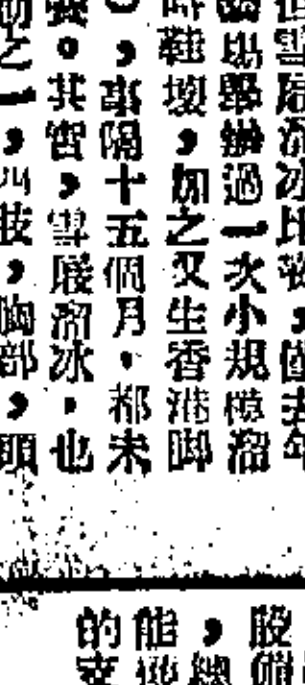 雪屐溜冰比賽，僅去年
場舉辦過一次小規模溜
時鞋壞，加之又生香港脚
，事隔十五個月，都未
。其實，雪屐溜冰，也
之一，四肢，胸部，頭
股
，總
能
的